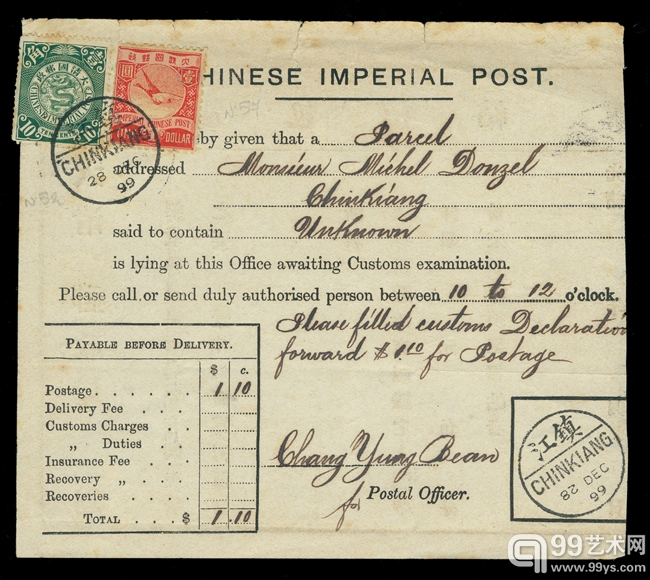 CHINESE IMPERIAL POST.
No 57
No 52
by given that a Parcel
addressed Monsieur Michel Donzel
Chinkiang
said to contain Unknown
is lying at this Office awaiting Customs examination.
Please call or send duly authorised person between 10 to 12 o'clock.
Please filled customs Declaration
forward $1.10 for Postage
PAYABLE BEFORE DELIVERY.
$ c.
Postage 1 10
Delivery Fee
Customs Charges
" Duties
Insurance Fee
Recovery "
Recoveries
TOTAL $ 1.10
Chang Yung Bean
for Postal Officer.
CHINKIANG
28 DEC
99
IMPERIAL CHINESE POST
DOLLAR
10
江鎮
CHINKIANG
82 DEC
99
99艺术网
www.99ys.com